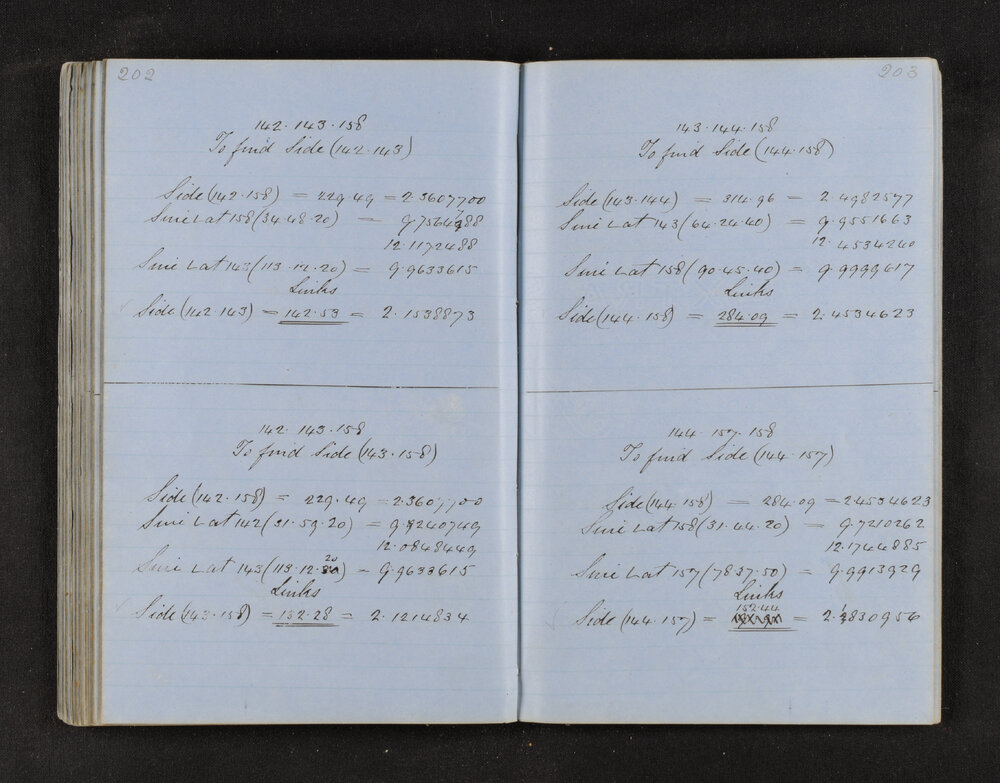 202
142.143.158
To find Side (142.143)
Side (142.158) = 229.49 = 2.3607700
Sine L at 158 (34.48.20) = 9.7564788
12.1172488
Sine L at 143 (113.12.20) = 9.9633615
Links
Side (142.143) = 142.53 = 2.1538873
142.143.158
To find Side (143.158)
Side (142.158) = 229.49 = 2.3607700
Sine L at 142 (31.59.20) = 9.7240749
12.0848449
Sine L at 143 (113.12.20) = 9.9633615
Links
Side (143.158) = 132.28 = 2.1214834
203
143.144.158
To find Side (144.158)
Side (143.144) = 314.96 = 2.4982577
Sine L at 143 (64.24.40) = 9.9551663
12.4534240
Sine L at 158 (90.45.40) = 9.9999617
Links
Side (144.158) = 284.09 = 2.4534623
144.157.158
To find Side (144.157)
Side (144.158) = 284.09 = 2.4534623
Sine L at 158 (31.44.20) = 9.7210262
12.1744885
Sine L at 157 (78.37.50) = 9.9913929
Links
152.44
Side (144.157) = = 2.1830956